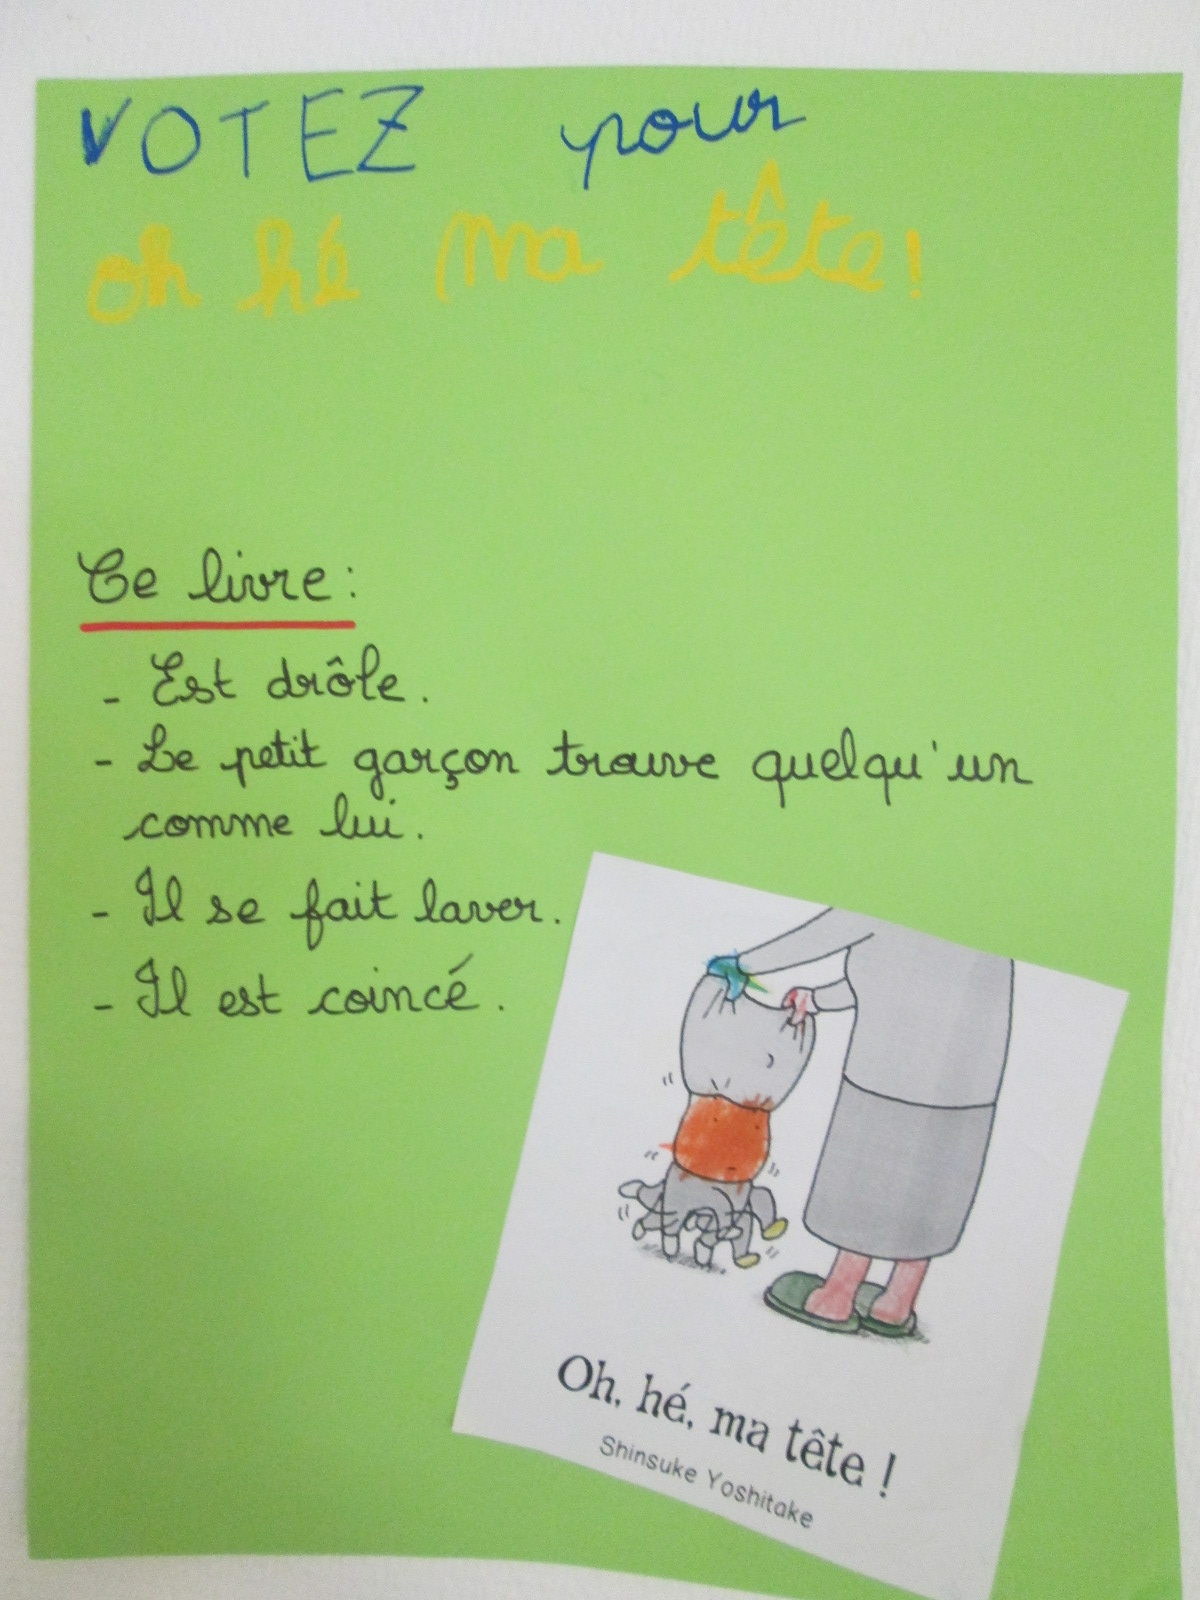 VOTEZ pour
oh hé ma tête!
Ce livre:
- Est drôle.
- Le petit garçon trouve quelqu'un
comme lui.
- Il se fait laver.
- Il est coincé.
Oh, hé, ma tête !
Shinsuke Yoshitake